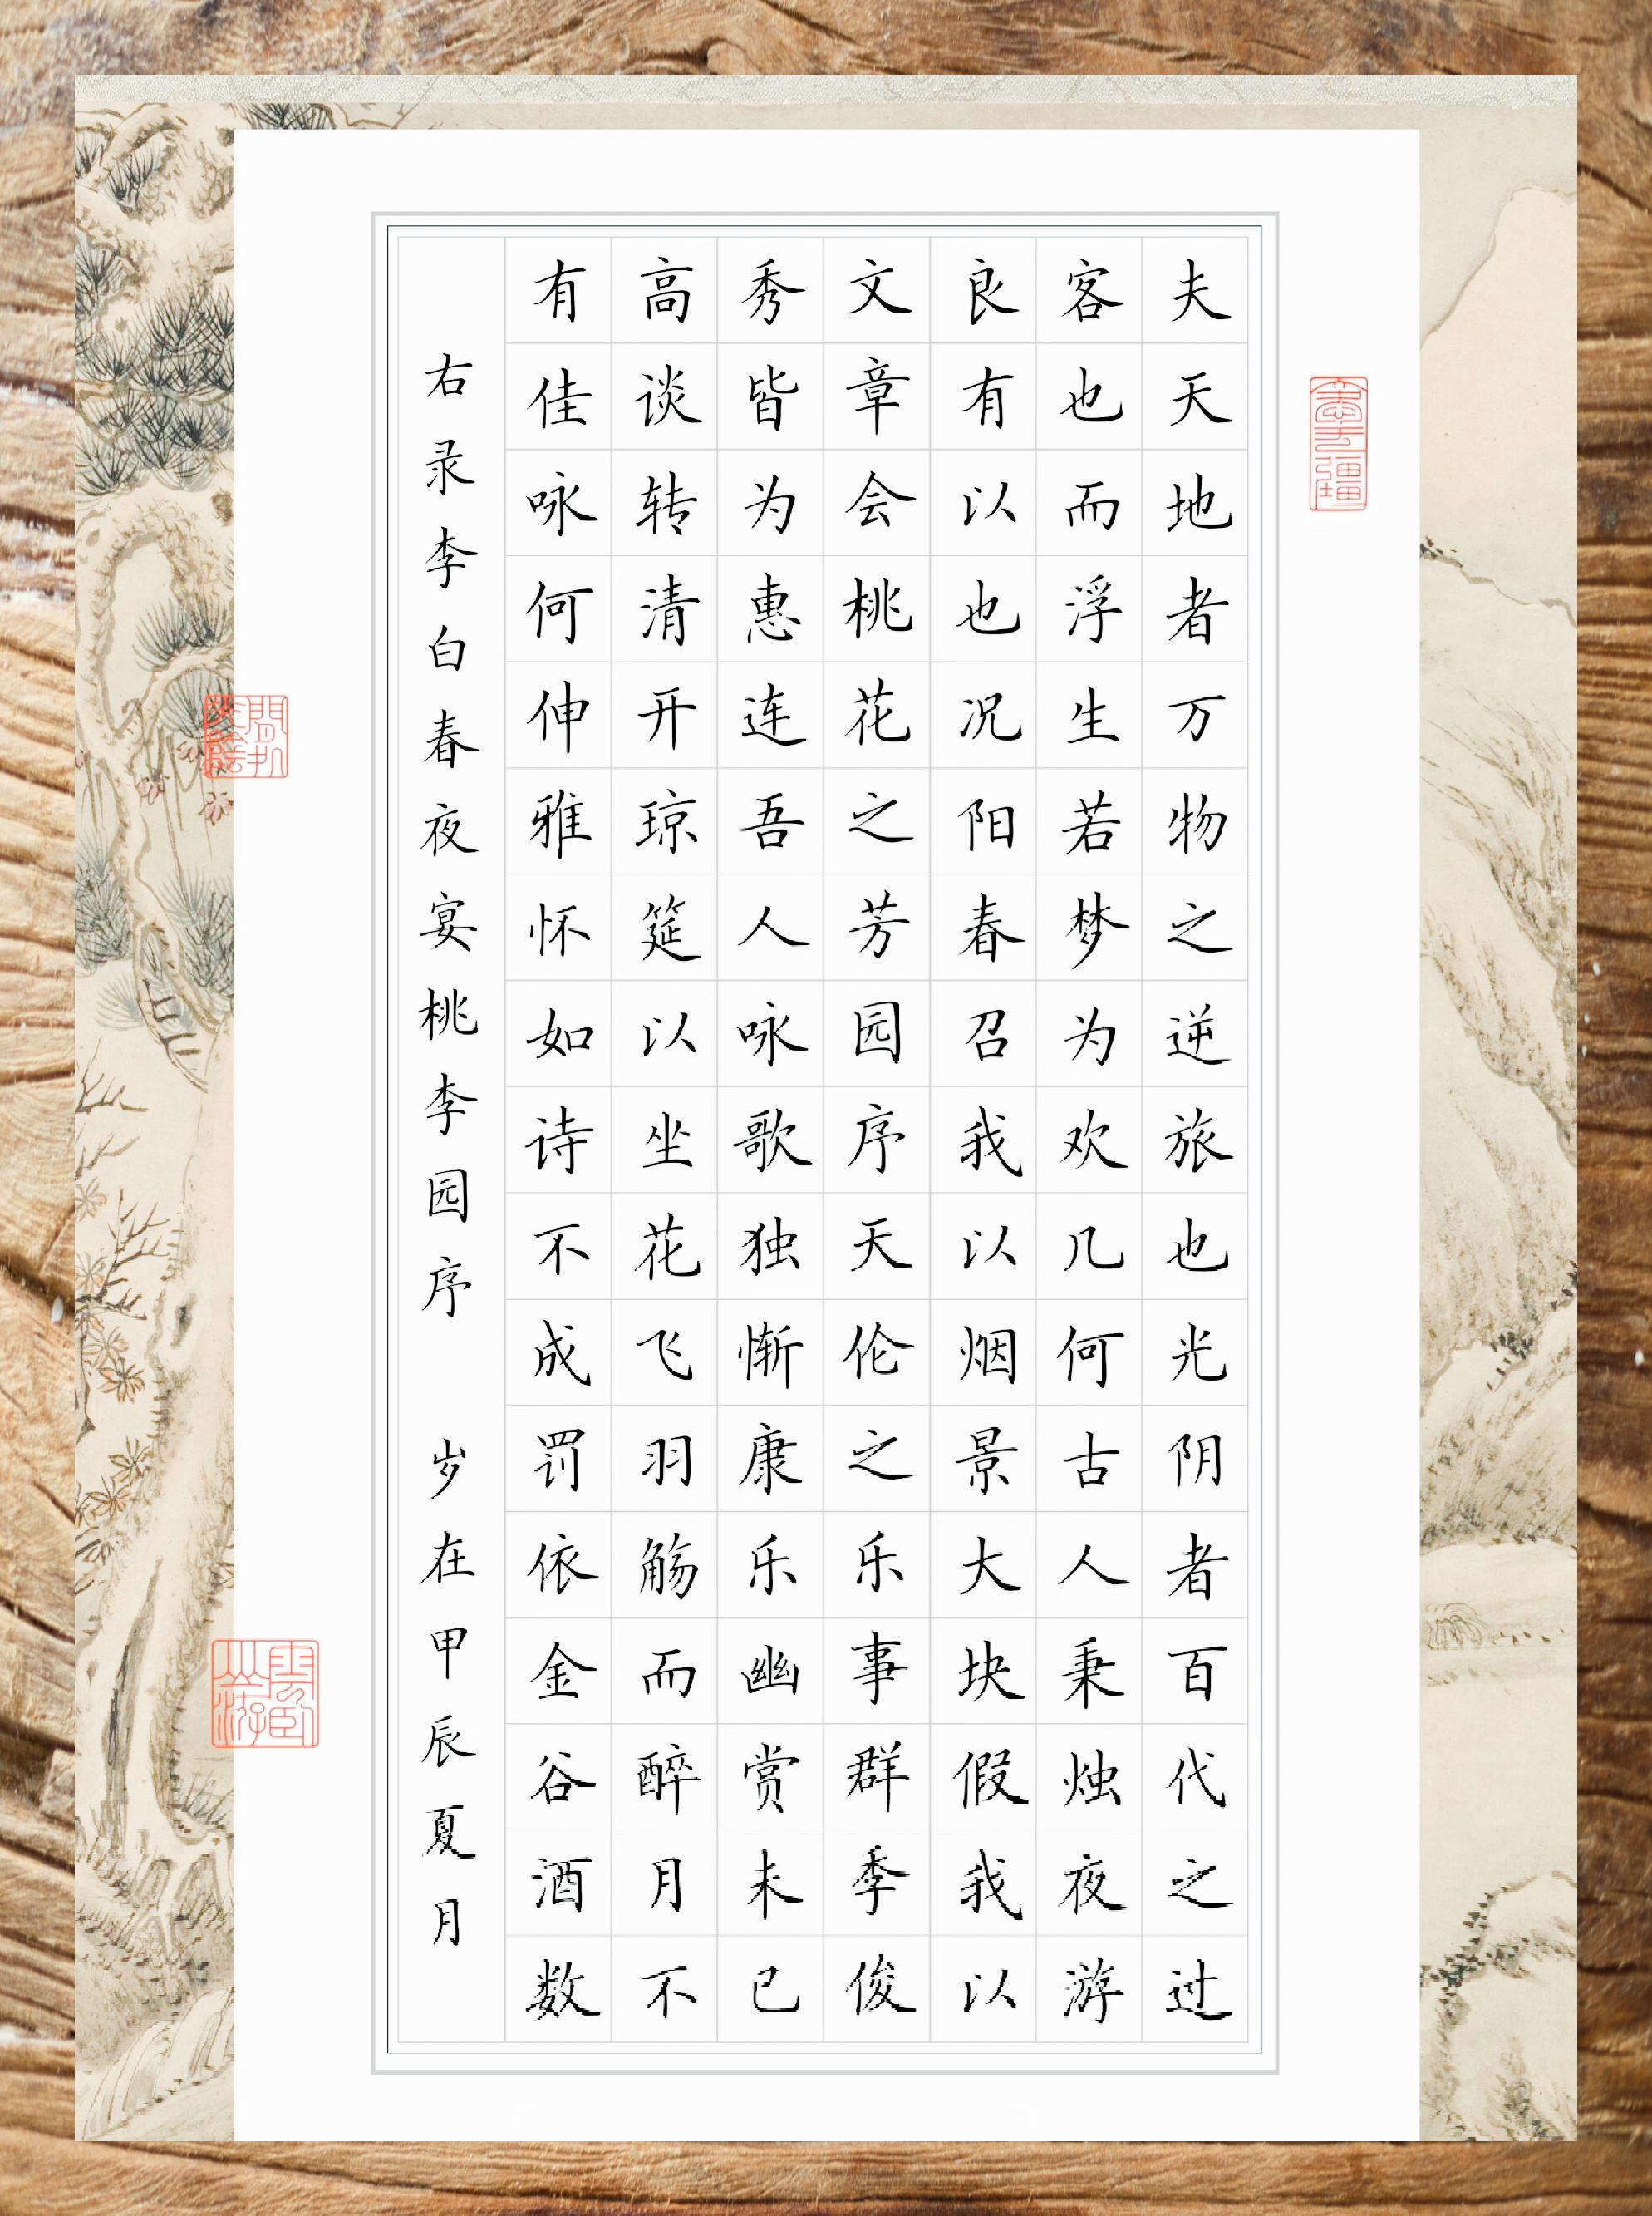 夫天地者万物之逆旅也光阴者百代之过
客也而浮生若梦为欢几何古人秉烛夜游
良有以也况阳春召我以烟景大块假我以
文章会桃花之芳园序天伦之乐事群季俊
秀皆为惠连吾人咏歌独惭康乐幽赏未已
高谈转清开琼筵以坐花飞羽觞而醉月不
有佳咏何伸雅怀如诗不成罚依金谷酒数
右录李白春夜宴桃李园序 岁在甲辰夏月